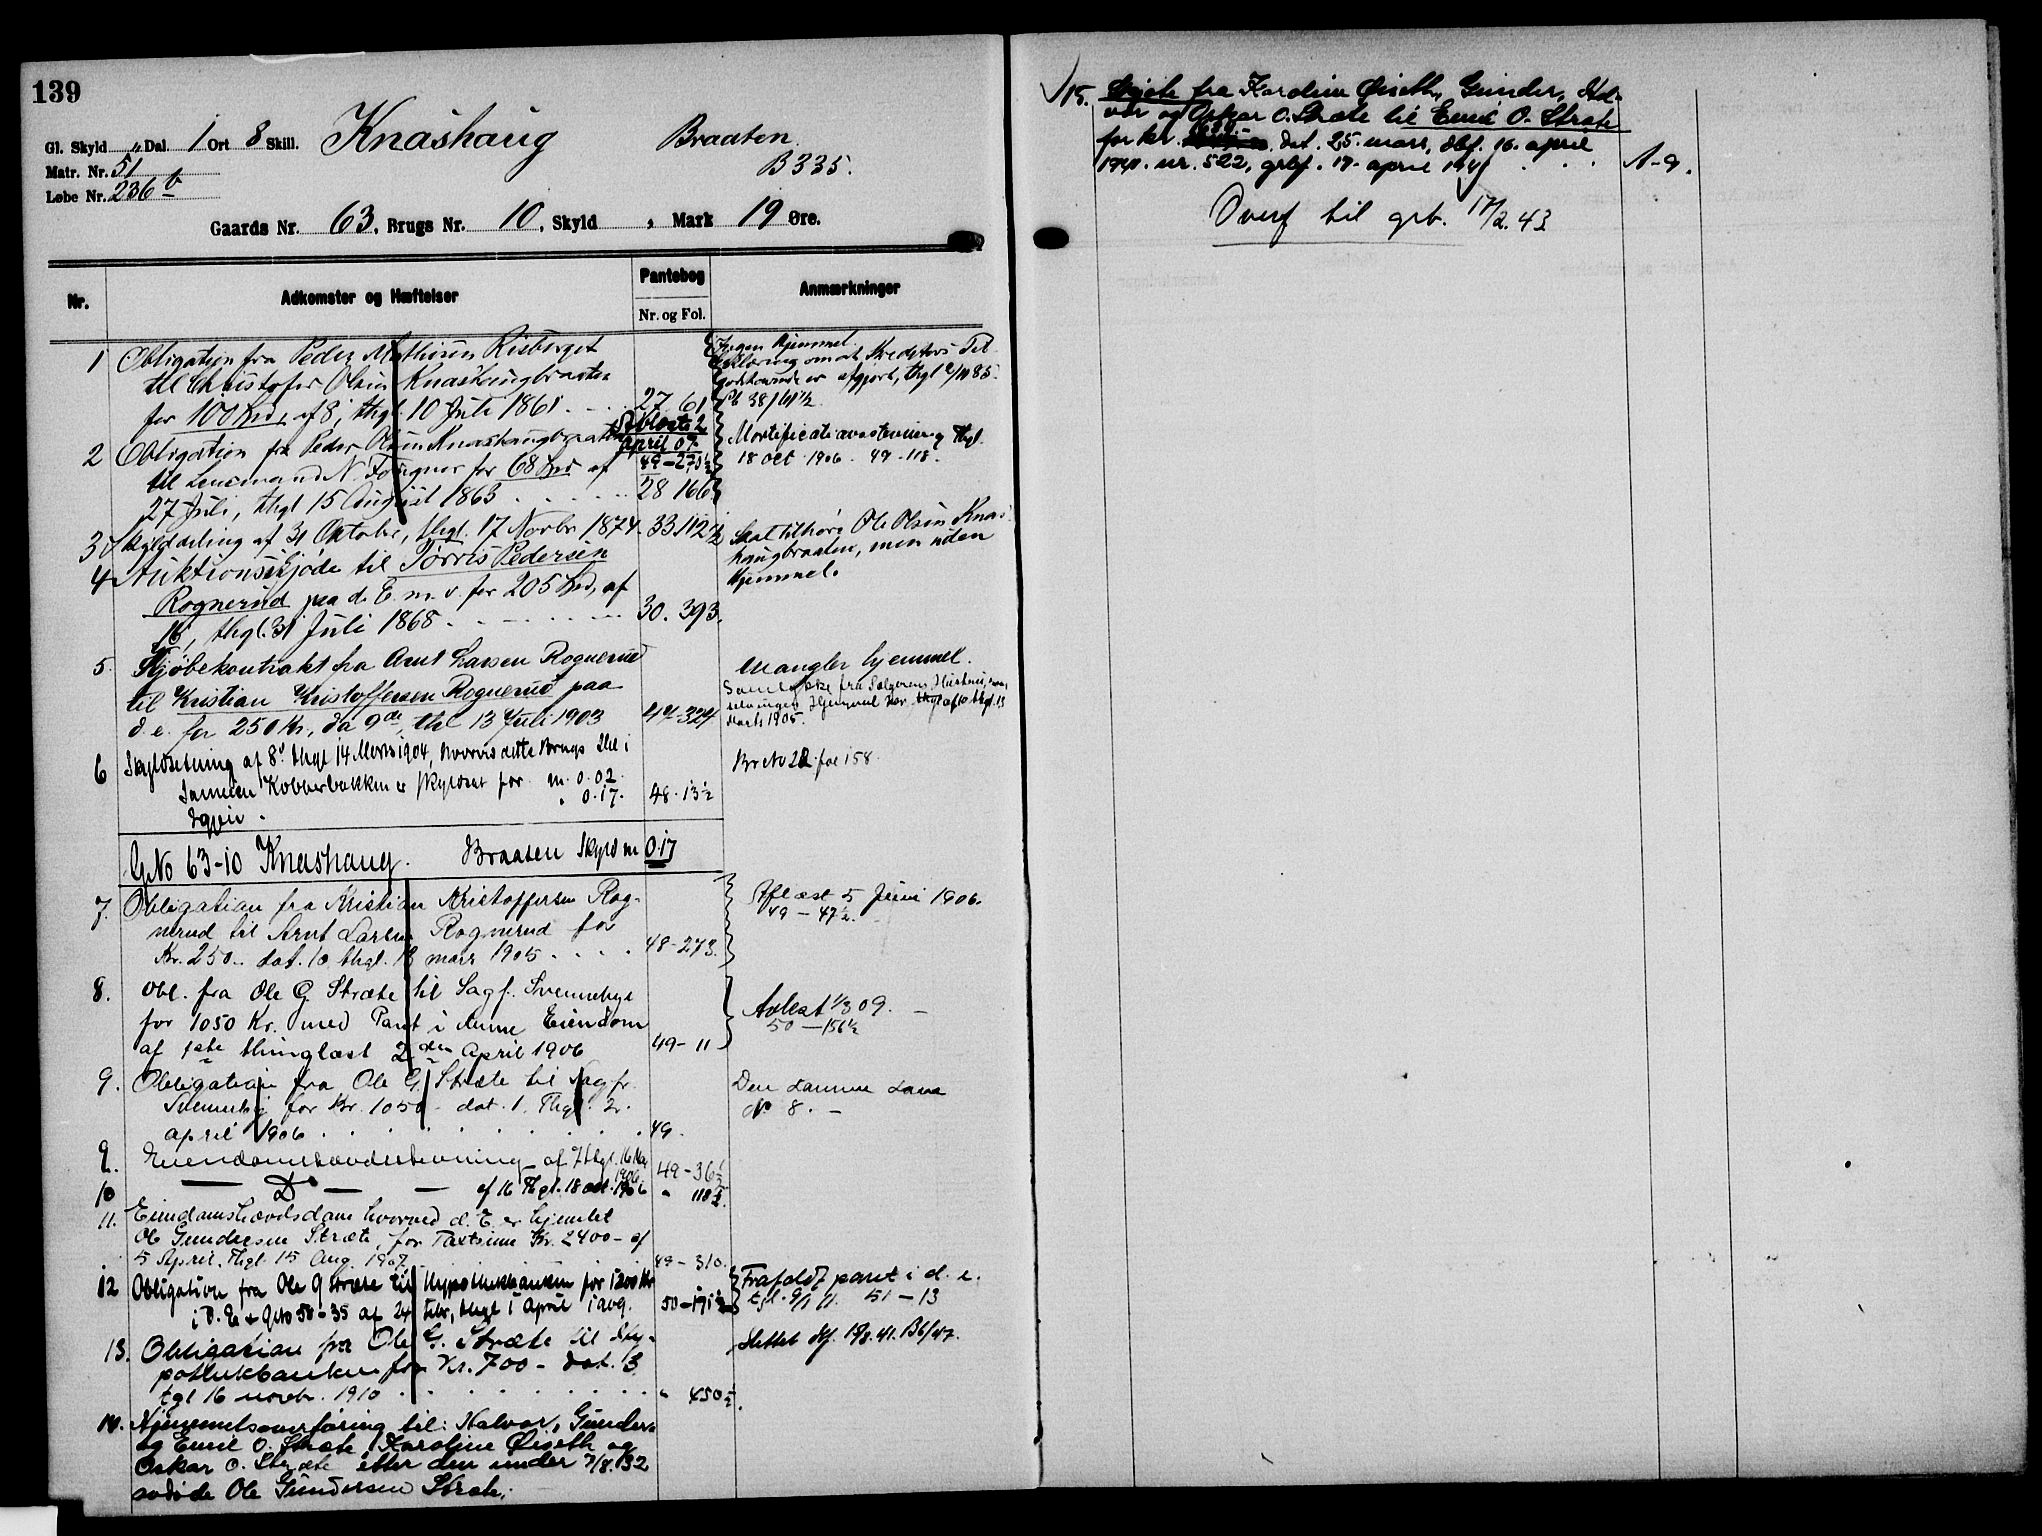 139
Gl. Skyld " Dal. 1 Ort 8 Skill. Knashaug Braaten
Matr. Nr. 51 B 335.
Løbe Nr. 236 b
Gaards Nr. 63, Brugs Nr. 10, Skyld , Mark 19 Øre.
Nr. Adkomster og Hæftelser Pantebog Anmærkninger
Nr. og Fol.
1 Obligation fra Peder Mathisen Risberget
til Christofer Olsen Knashaugbraaten
for 100 Spd, af 8, thgl. 10 Juli 1861 27 61
Ingen Hjemmel.
Erklæring om at Kreditors Til-
godehavende er afgjort, thgl
Pb 38/
2 Obligation fra Peder Olsen Knashaugbraaten
til Lensmand N. Fougner for 68 Spd af
27 Juli, thgl 15 August 1863 28 166
Afløst 2
April 07
49-275½
Mortificationsstevning thgl.
18 Oct 1906. 49-118.
3 Skylddeling af 31 Oktober, thgl. 17 Novbr 1874. 33.112½
Skal tilhøre Ole Olsen Knas-
haugbraaten, men uden
Hjemmel.
4 Auktionsskjøde til Tørris Pedersen
Rognerud paa d. E. m. v. for 205 Spd, af
16, thgl. 31 Juli 1868 30. 393.
5. Kjøbekontrakt fra Arnt Larsen Rognerud
til Kristian Kristoffersen Rognerud paa
d. e. for 250 Kr, da 9de, thl 13 Juli 1903 47-324
Mangler hjemmel.
Samtykke fra Sælgerens Hustru,
Marts 1905.
6 Skyldsetning af 8. thgl 14 Marts 1904, hvorved dette Brugs Del i
Sameien Kobberbakken er skyldsat for m. 0.02.
Igjen . " 0.17. 48.13½
Br No 22. fol 158.
GNo 63-10 Knashaug. Braaten Skyld m 0.17
7. Obligation fra Kristian Kristoffersen Rog-
nerud til Arnt Larsen Rognerud for
Kr. 250.. dat. 10 thgl. 13 mars 1905 48-273.
Aflæst 5 Juni 1906.
49-47½.
8. Obl. fra Ole G. Stræte til Sagf. Svennebye
for 1050 Kr. med Pant i denne Eiendom
af 1ste thinglæst 2den April 1906 49-11
Avlest 1/3 09. –
50-156½
9. Obligation fra Ole G. Stræte til Sagfr.
Svenneby for Kr. 1050 - dat. 1. Thgl. 2.
april 1906 49.
Den samme som
No 8. –
9. Eiendomshævdstevning af 7 thgl. 16 Mai 1906 49-36½
10 — Do — — af 16 Thgl. 18 oct. 1906 " 118½.
11. Eiendomshævdsdom hvorved d. E. er hjemlet
Ole Gundersen Stræte, for Taxtsum Kr. 2400 - af
5 April. Thgl. 15 Aug. 1907. 49-310.
12 Obligation fra Ole G Stræte til Hypothekbanken for 1200 Kr
i D. E + GNo 58-35 af 24 febr, thgl 1 April 1909. 50-191½
Frafaldt pant i d. e.
tgl. 51-13
13. Obligation fra Ole G. Stræte til Hy-
pothekbanken for Kr. 700 - dat. 3
tgl 16 novbr. 1910 " 450½.
Slettet dbf. 41.
14. Hjemmelsoverføring til: Halvor, Gunder
og Emil O. Stræte, Karoline Øiseth og
Oskar O. Stræte etter den under 7/8.32
avdøde Ole Gundersen Stræte.
15. Skjøte fra Karoline Øiseth, Gunder, Hal-
vor og Oskar O. Stræte til Emil O. Stræte
for kr. dat. 25. mars, dbf. 16. april
1941. nr. 522, grbf. 17. april 1941 A-9.
Overf til grb. 17/2.43